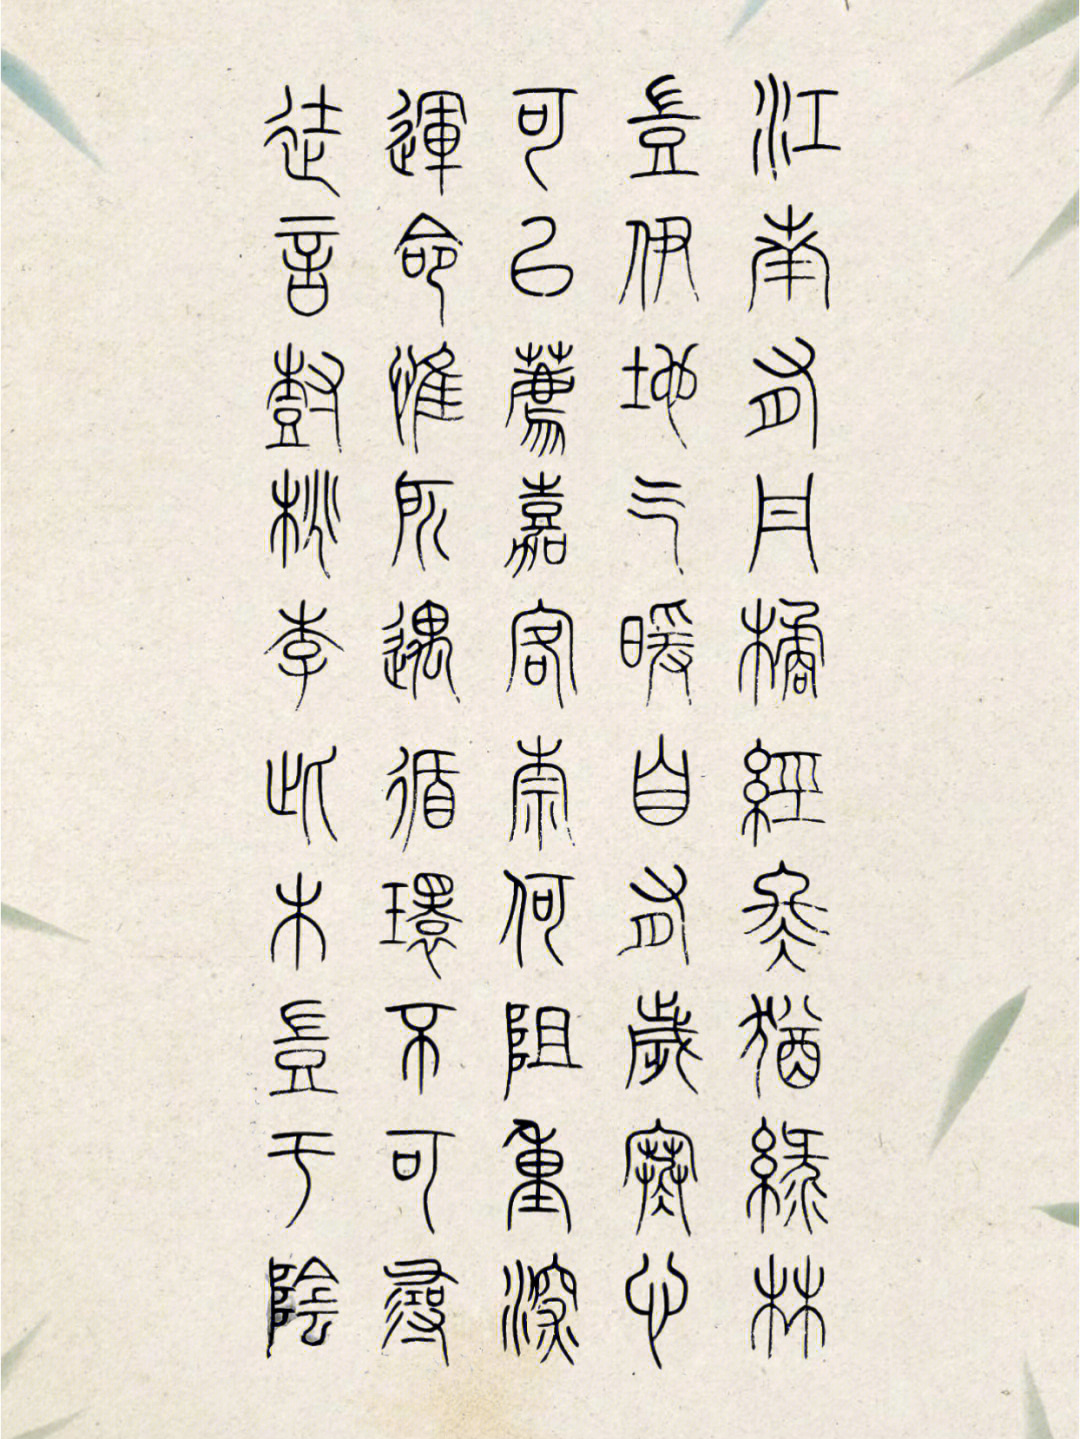 江南有丹橘經冬猶綠林
豈伊地气暖自有歲寒心
可以薦嘉客柰何阻重深
運命惟所遇循環不可尋
徒言尌桃李此木豈于陰